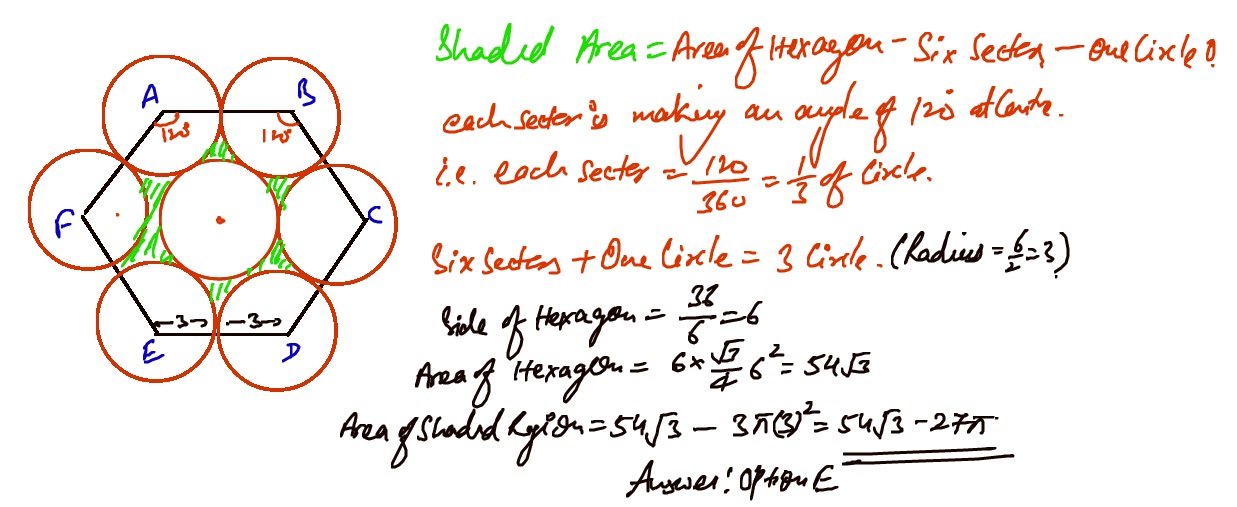 Shaded Area = Area of Hexagon - Six Sectors - One Circle.
each sector is making an angle of 120° at Centre.
i.e. each sector = 120/360 = 1/3 of Circle.
Six Sectors + One Circle = 3 Circle. (Radius = 6/2 = 3)
Side of Hexagon = 36/6 = 6
Area of Hexagon = 6 × √3/4 6² = 54√3
Area of Shaded Region = 54√3 - 3π(3)² = 54√3 - 27π
Answer: Option E
A
B
120°
120°
F
C
3
3
E
D